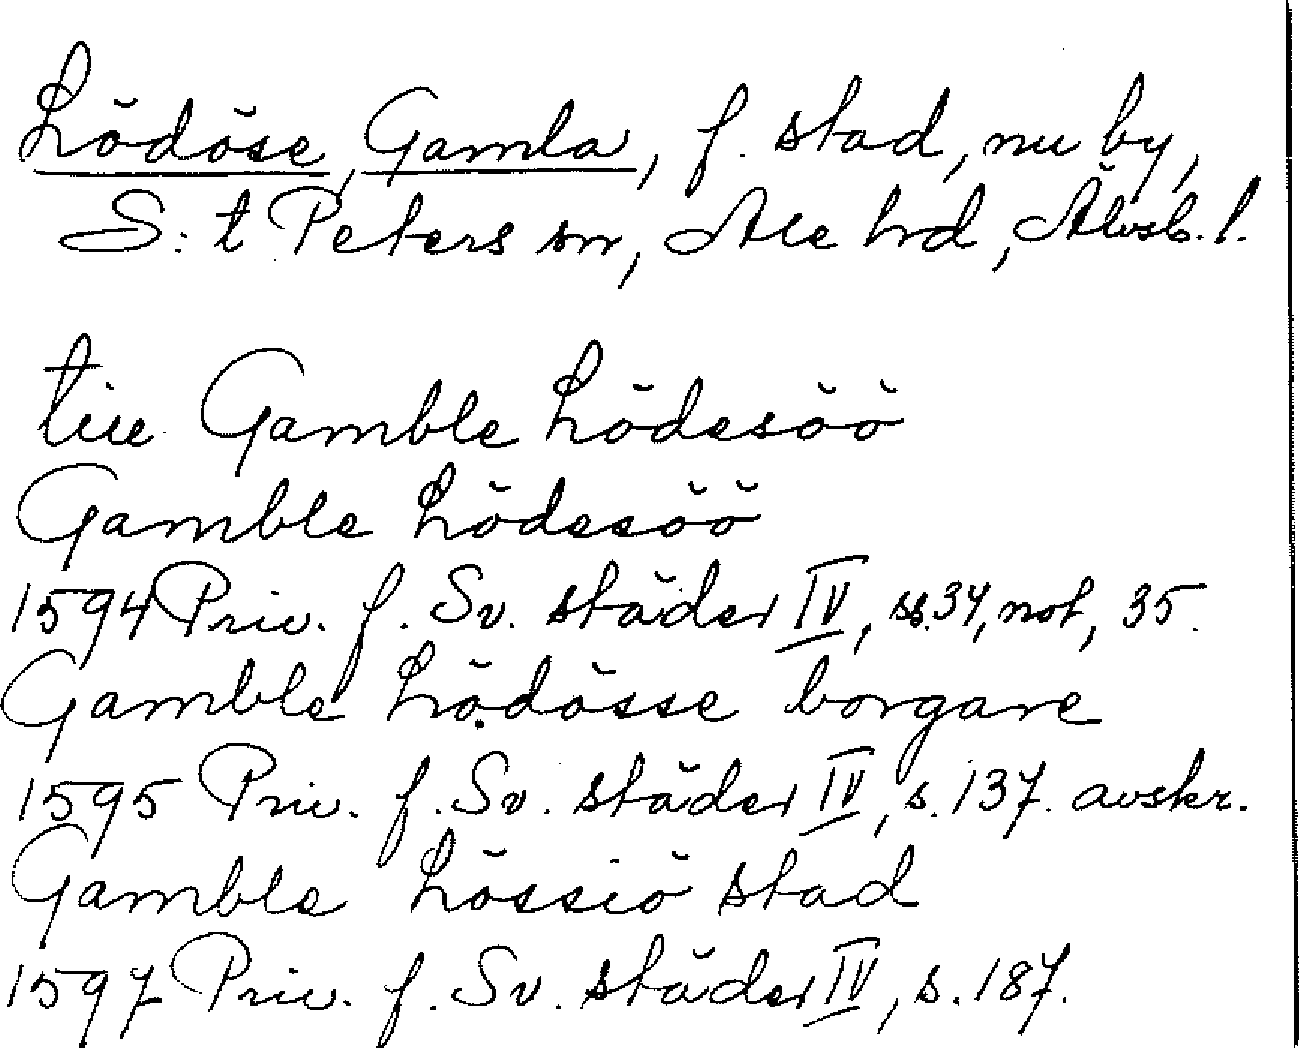 Lödöse, Gamla, f. stad, nu by,
S:t Peters sn, Ale hd, Älvsb. l.
till Gamble Lödesöö
Gamble Lödesöö
1594 Priv. f. Sv. städer IV, ss. 34, not, 35.
Gamble Lödösse borgare
1595 Priv. f. Sv. städer IV, s. 137. avskr.
Gamble Lössiö stad
1597 Priv. f. Sv. städer IV, s. 187.